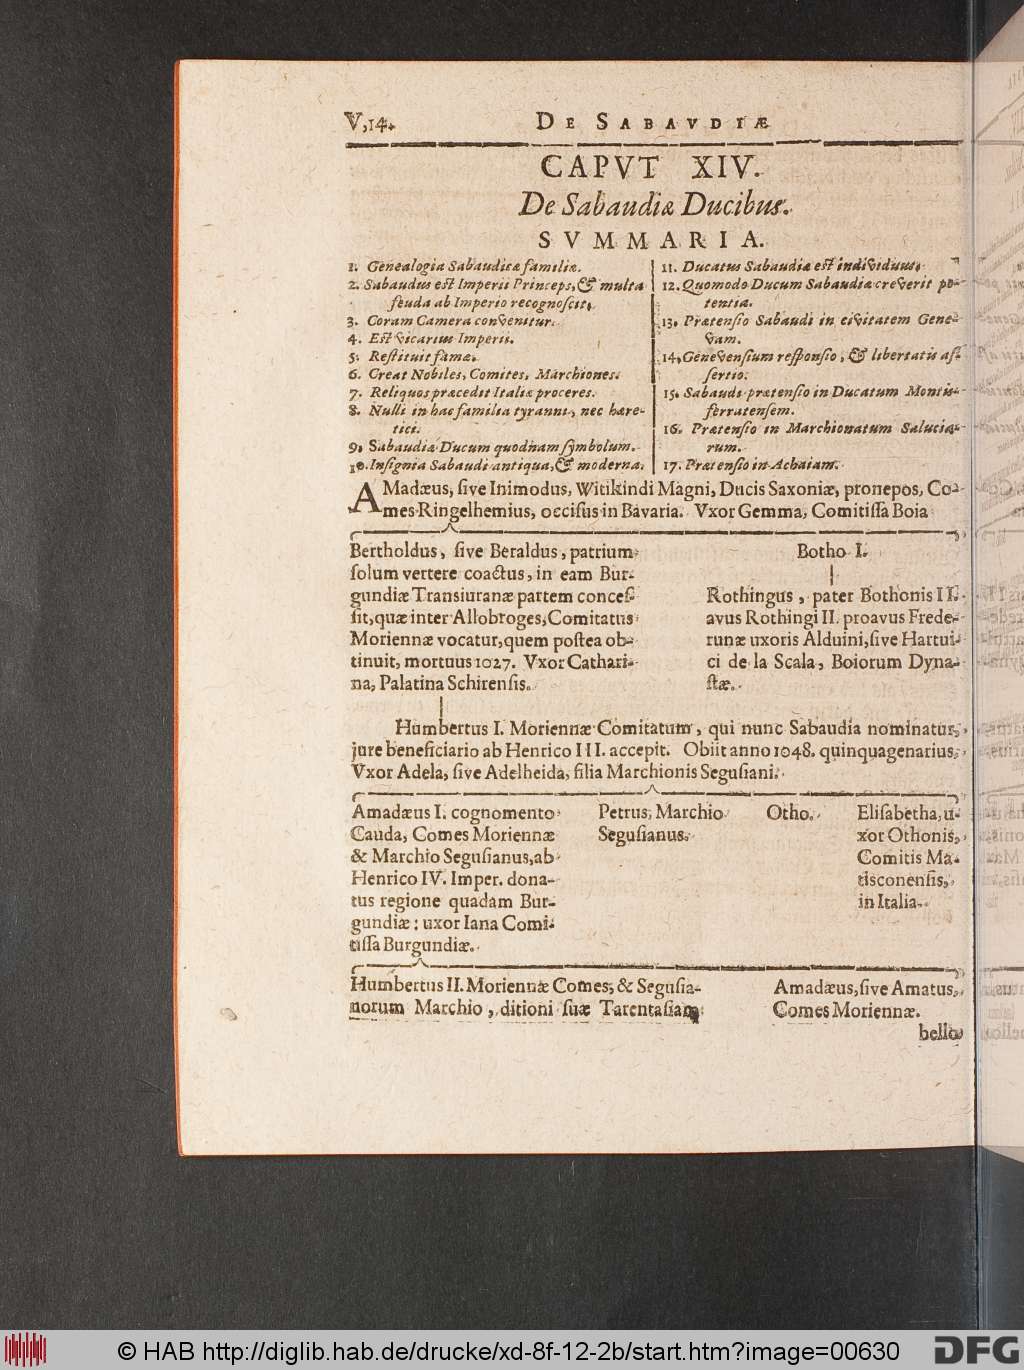 V,14.
DE SABAVDIÆ
CAPVT XIV.
De Sabaudiæ Ducibus.
SVMMARIA.
1. Genealogia Sabaudicæ familiæ.
2. Sabaudus est Imperii Princeps, & multa
feuda ab Imperio recognoscit.
3. Coram Camera convenitur.
4. Est Vicarius Imperii.
5. Restituit famæ.
6. Creat Nobiles, Comites, Marchiones.
7. Reliquos præcedit Italiæ proceres.
8. Nulli in hac familia tyranni, nec hære-
tici.
9. Sabaudiæ Ducum quodnam symbolum.
10. Insignia Sabaudi antiqua, & moderna.
11. Ducatus Sabaudiæ est individuus.
12. Quomodo Ducum Sabaudiæ creverit po-
tentia.
13. Prætensio Sabaudi in civitatem Gene-
vam.
14. Genevensium responsio, & libertatis as-
sertio.
15. Sabaudi prætensio in Ducatum Montis-
ferratensem.
16. Prætensio in Marchionatum Salucia-
rum.
17. Prætensio in Achaiam.
AMadæus, sive Inimodus, Witikindi Magni, Ducis Saxoniæ, pronepos, Co-
mes Ringelhemius, occisus in Bavaria. Vxor Gemma, Comitissa Boia
Bertholdus, sive Beraldus, patrium
solum vertere coactus, in eam Bur-
gundiæ Transiuranæ partem conces-
sit, quæ inter Allobroges, Comitatus
Moriennæ vocatur, quem postea ob-
tinuit, mortuus 1027. Vxor Cathari-
na, Palatina Schirensis.
Botho I.
Rothingus, pater Bothonis II.
avus Rothingi II. proavus Frede-
runæ uxoris Alduini, sive Hartui-
ci de la Scala, Boiorum Dyna-
stæ.
Humbertus I. Moriennæ Comitatum, qui nunc Sabaudia nominatur,
jure beneficiario ab Henrico III. accepit. Obiit anno 1048. quinquagenarius,
Vxor Adela, sive Adelheida, filia Marchionis Segusiani.
Amadæus I. cognomento
Cauda, Comes Moriennæ
& Marchio Segusianus, ab
Henrico IV. Imper. dona-
tus regione quadam Bur-
gundiæ: uxor Iana Comi-
tissa Burgundiæ.
Petrus, Marchio
Segusianus.
Otho.
Elisabetha, u-
xor Othonis,
Comitis Ma-
tisconensis,
in Italia.
Humbertus II. Moriennæ Comes, & Segusia-
norum Marchio, ditioni suæ Tarentasiam
Amadæus, sive Amatus,
Comes Moriennæ.
bello
© HAB http://diglib.hab.de/drucke/xd-8f-12-2b/start.htm?image=00630
DFG